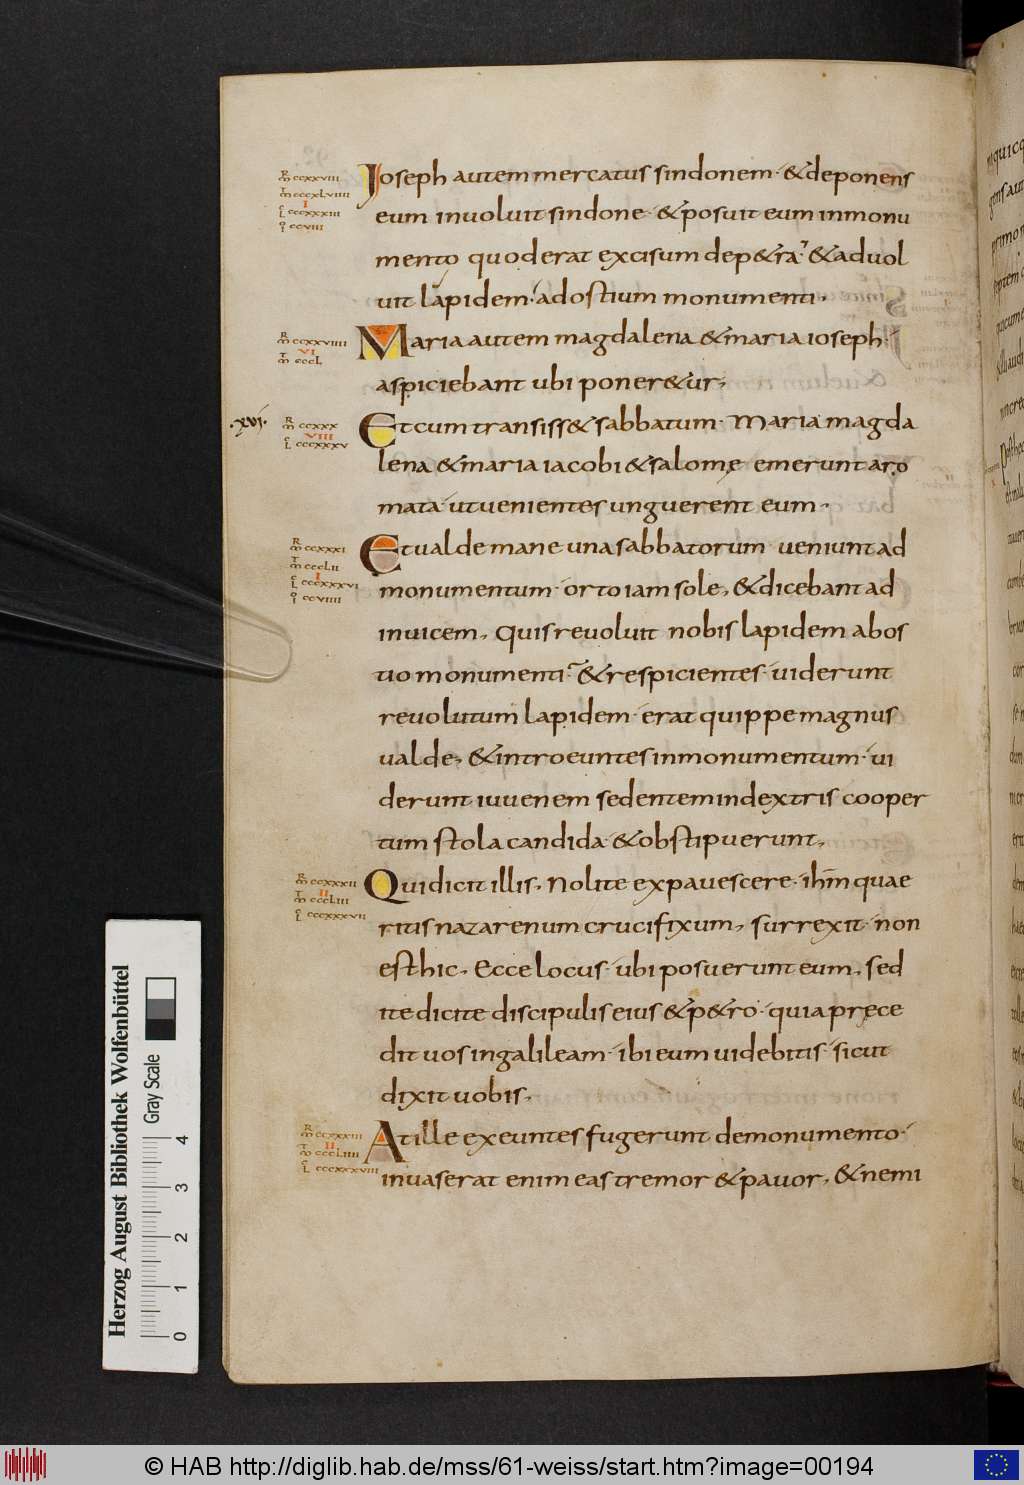 Ioseph autem mercatus sindonem · & deponens
eum inuoluit sindone · & posuit eum in monu
mento quod erat excisum de p&ra · & aduol
uit lapidem · ad ostium monumenti ·
Maria autem magdalena & maria ioseph ·
aspiciebant ubi poner&ur ,
·xvi·
Et cum transiss& sabbatum · Maria magda
lena & maria iacobi & salomę emerunt aro
mata ut uenientes unguerent eum ·
Et ualde mane una sabbatorum · ueniunt ad
monumentum · orto iam sole , & dicebant ad
inuicem , Quis reuoluit nobis lapidem ab os
tio monumenti · & respicientes · uiderunt
reuolutum lapidem · erat quippe magnus
ualde , & introeuntes in monumentum · ui
derunt iuuenem sedentem in dextris cooper
tum stola candida · & obstipuerunt ,
Qui dicit illis , Nolite expauescere · ihm quae
ritis nazarenum crucifixum , surrexit · non
est hic , Ecce locus · ubi posuerunt eum , sed
ite dicite discipulis eius & p&ro · quia pręce
dit uos in galileam · ibi eum uidebitis · sicut
dixit uobis ,
At ille exeuntes fugerunt de monumento ·
inuaserat enim eas tremor & pauor , & nemi
R
m ccxxviii
T
m cccxLviiii
I
c
L cccxxxiii
o
i ccviii
R
m ccxxviiii
VI
T
m cccL
R
m ccxxx
VIII
c
L cccxxxv
R
m ccxxxi
T
m cccLii
I
c
L cccxxxvi
o
i ccviiii
R
m ccxxxii
II
T
m cccLiii
c
L cccxxxvii
R
m ccxxxiii
II
T
m cccLiiii
c
L cccxxxviii
Herzog August Bibliothek Wolfenbüttel
Gray Scale
0 1 2 3 4
© HAB http://diglib.hab.de/mss/61-weiss/start.htm?image=00194